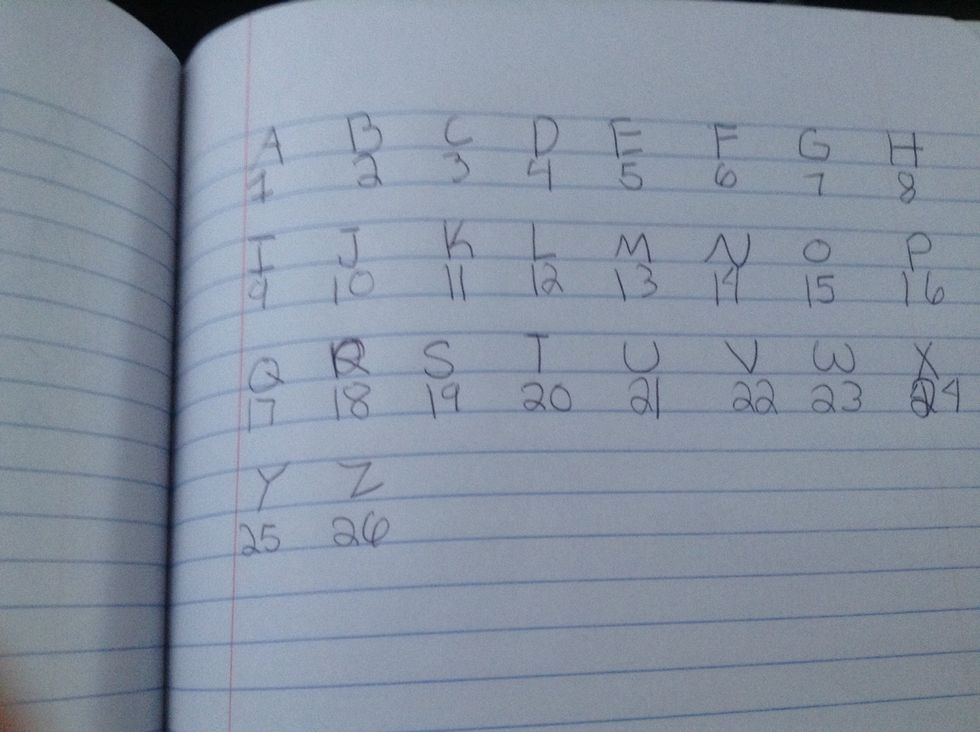 A B C D E F G H
1 2 3 4 5 6 7 8
I J K L M N O P
9 10 11 12 13 14 15 16
Q R S T U V W X
17 18 19 20 21 22 23 24
Y Z
25 26